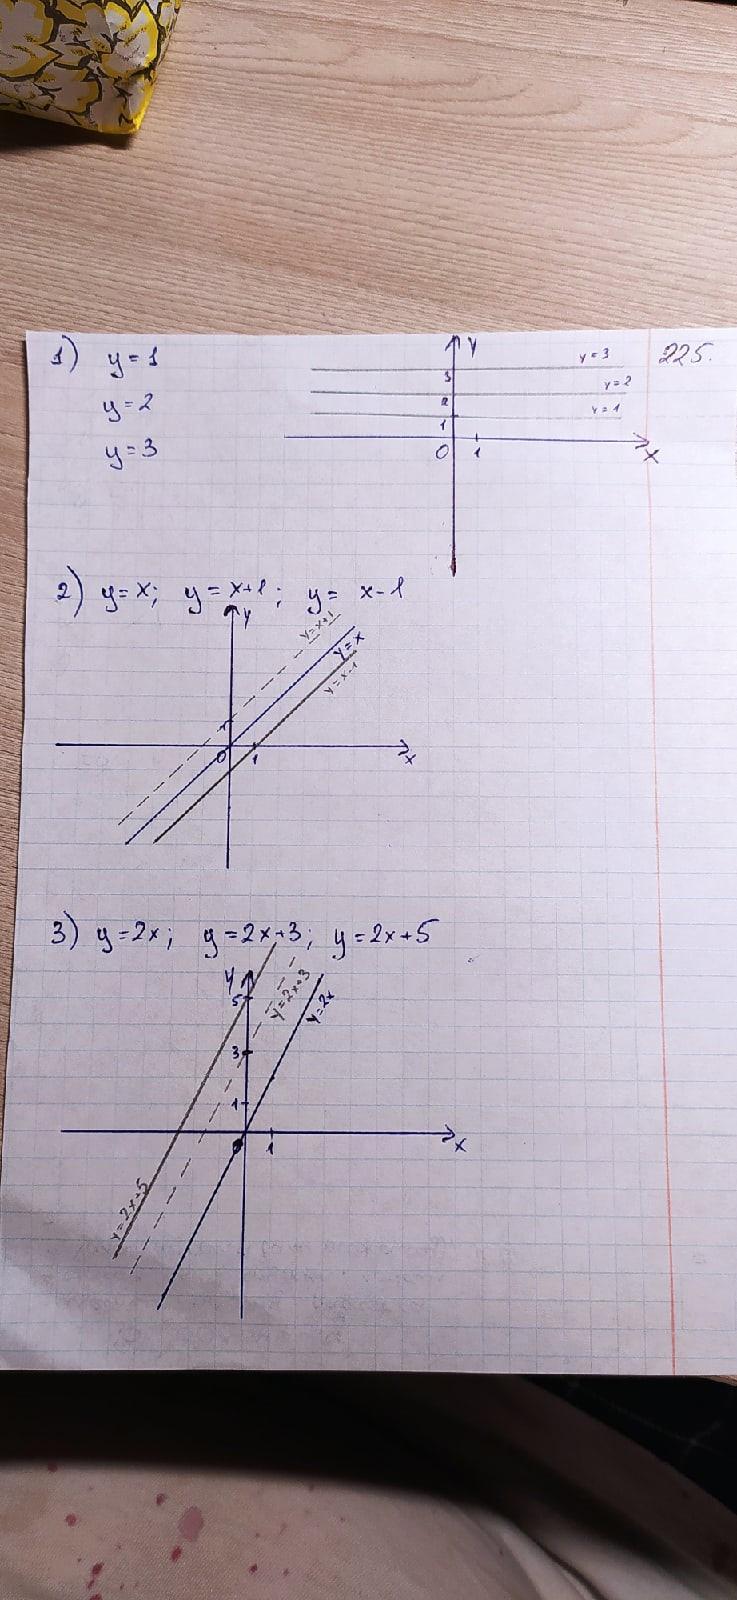 1) y=1
y=2
y=3
225.
y
y=3
3
y=2
2
y=1
1
0 1 x
2) y=x; y=x+1; y= x-1
y
y=x+1
y=x
y=x-1
1
0 1 x
3) y=2x; y=2x+3; y=2x+5
y
5
y=2x+3
y=2x
3
1
0 1 x
y=2x+5